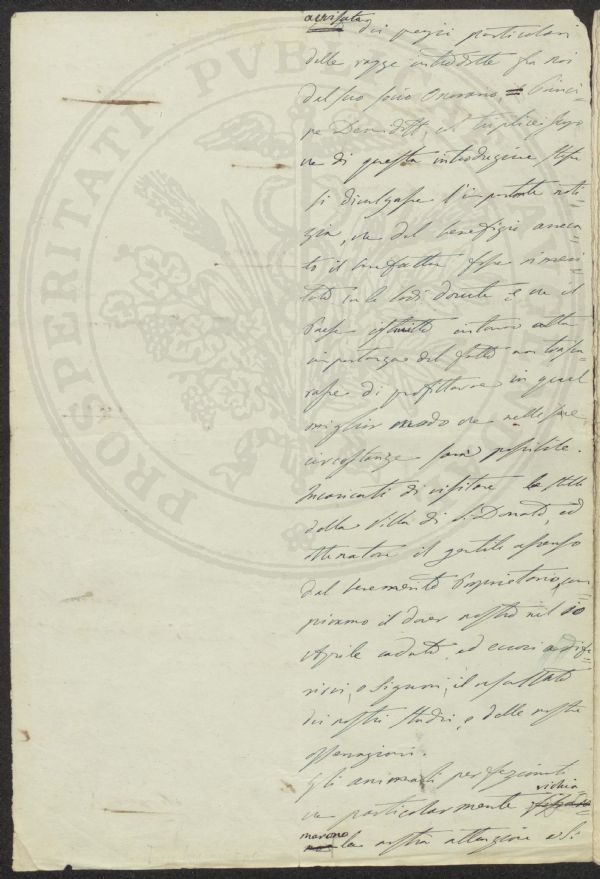 avvisata dei pregi particolari
delle razze introdotte fra noi
dal suo socio Onorario, il Princi=
pe Demidoff, e
di questa introduzione
si divulgasse l'importante noti=
zia, che del benefizio arreca=
to il benefattore fosse rimeri=
tato con le lodi dovute e che il
Paese istruito intorno alla
importanza del fatto non
di profittarne in quel
miglior modo che nelle sue
circostanze sarà possibile.
Incaricati di visitare le stalle
della Villa di S. Donato, ed
ottenutone il gentile assenso
dal benemerito Proprietario, com=
pimmo il dover nostro nel 10
Aprile caduto, ed eccoci a rife=
rirvi, o Signori, il resultato
dei nostri studi, e delle nostre
osservazioni.
Gli animali perfezionati
richia=
che particolarmente
marono la nostra attenzione
PROSPERITATI PVBLICAE